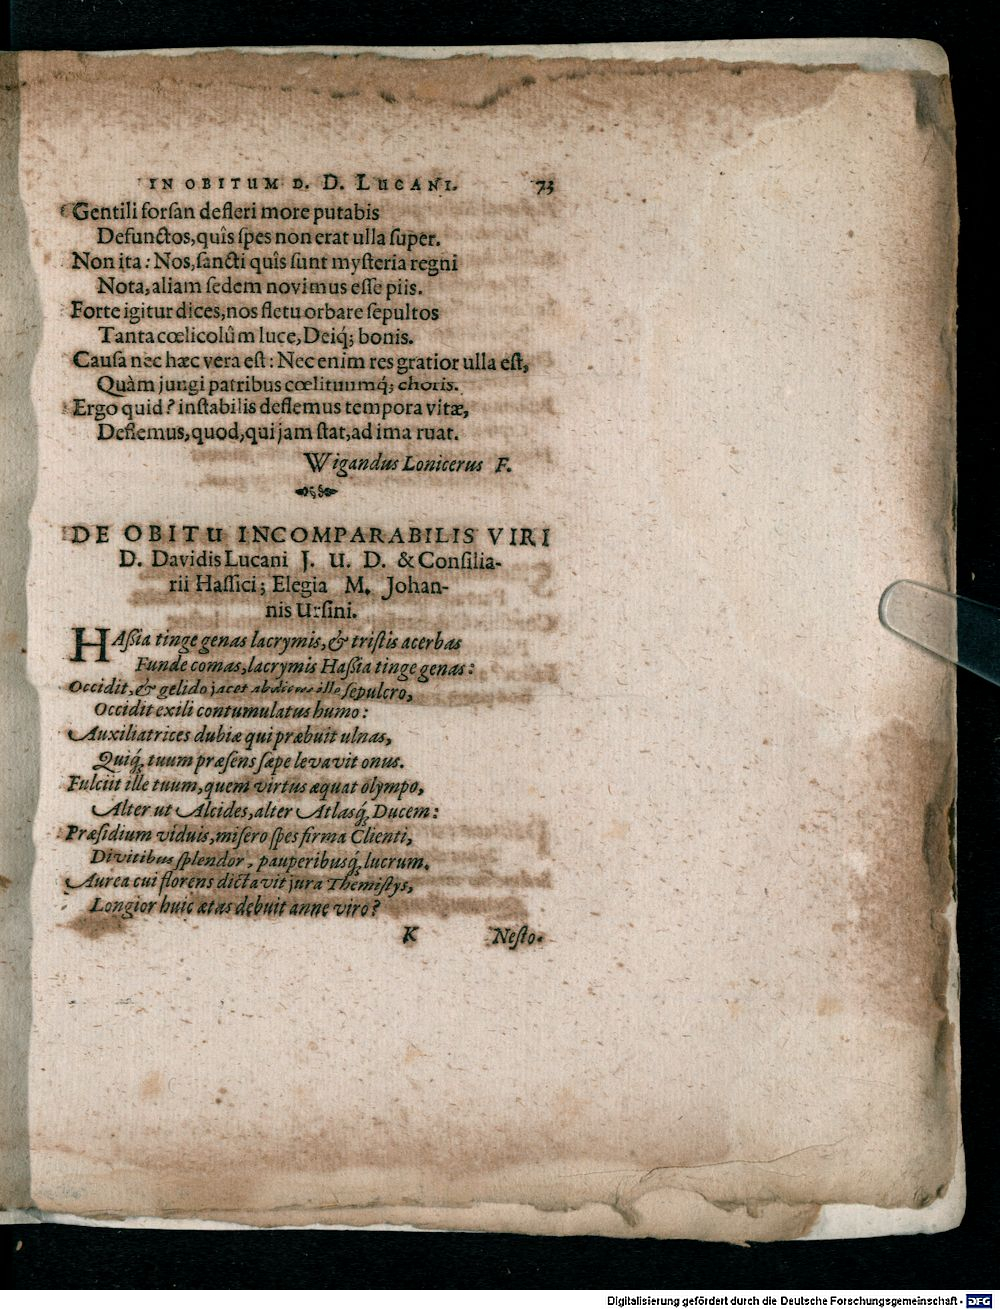 IN OBITUM D. D. LUCANI. 73
Gentili forſan defleri more putabis
Defunctos, quîs ſpes non erat ulla ſuper.
Non ita: Nos, ſancti quîs ſunt myſteria regni
Nota, aliam ſedem novimus eſſe piis.
Forte igitur dices, nos fletu orbare ſepultos
Tanta cœlicolûm luce, Deiq́; bonis.
Cauſa nec hæc vera eſt: Nec enim res gratior ulla eſt,
Quàm jungi patribus cœlituumq́; choris.
Ergo quid? inſtabilis deflemus tempora vitæ,
Deflemus, quod, qui jam ſtat, ad ima ruat.
Wigandus Lonicerus F.
DE OBITU INCOMPARABILIS VIRI
D. Davidis Lucani J. U. D. & Conſilia-
rii Haſſici; Elegia M. Johan-
nis Urſini.
HAßia tinge genas lacrymis, & triſtis acerbas
Funde comas, lacrymis Haßia tinge genas:
Occidit, & gelido jacet ille ſepulcro,
Occidit exili contumulatus humo:
Auxiliatrices dubiæ qui præbuit ulnas,
Quiq́; tuum præſens ſæpe levavit onus.
Fulciit ille tuum, quem virtus æquat olympo,
Alter ut Alcides, alter Atlasq́; Ducem:
Præſidium viduis, miſero ſpes firma Clienti,
Divitibus ſplendor, pauperibusq́; lucrum.
Aurea cui florens dictavit jura Themiſtys,
Longior huic ætas debuit anne viro?
K Neſto-
Digitalisierung gefördert durch die Deutsche Forschungsgemeinschaft - DFG